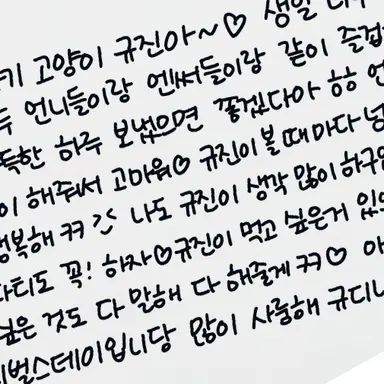 키 고양이 규진아~♡ 생일
언니들이랑 엔써들이랑 같이 즐겁
독한 하루 보냈으면 좋겠다아 ㅎㅎ 언
이 해주서 고마워♡ 규진이 볼 때마다 넘
행복해 ㅋㅋ 나도 규진이 생각 많이 하구
파티도 꼭! 하자♡ 규진이 먹고 싶은거 있
싶은 것도 다 말해 다 해줄게 ㅋㅋ♡ 아
벌스데이입니당 많이 사룽해 규디니